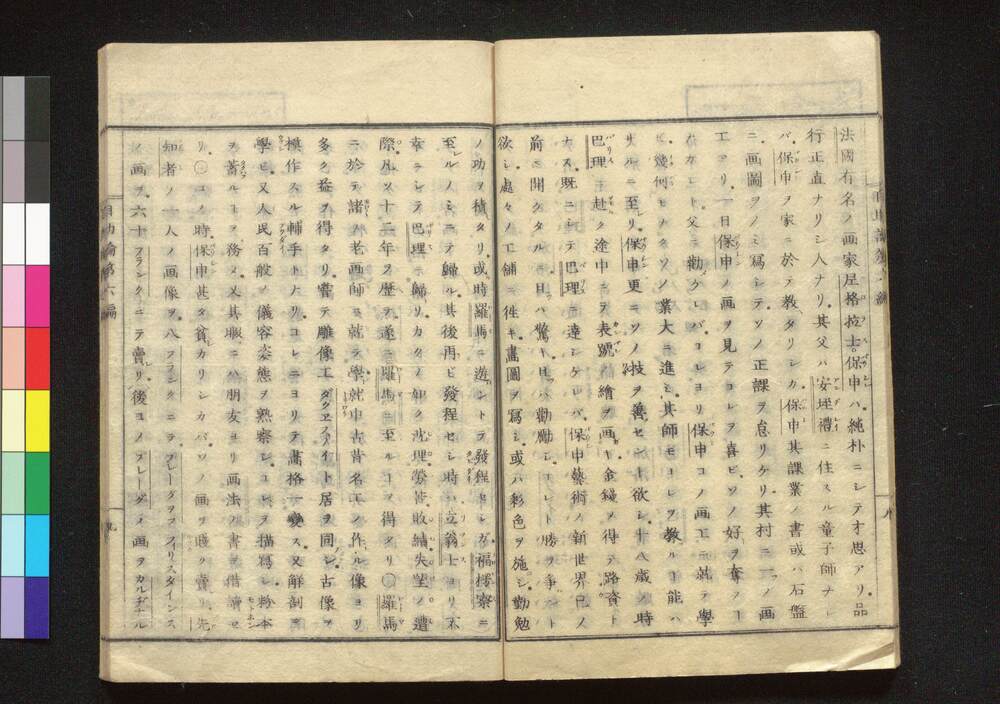 法國有名ノ画家尼格拉士保申ハ純朴ニシテオ思アリ品
行正直ナリシ人ナリ其父ハ安垤禮ニ住スル童子師ナレ
バ保申ヲ家ニ於テ教タリシカ保申其課業ノ書或ハ石盤
ニ画圖ヲノミ寫シテソノ正課ヲ怠リケリ其村ニ一ノ画
工アリ一日保申ノ画ヲ見テコレヲ喜ビソノ好ヲ奪フヿ
ナカレト父ニ勸クレバコレヨリ保申コノ画工ニ就テ學
ビ幾何モナクソノ業大ニ進ミ其師モコレヲ教ルヿ能ハ
サルニ至リ保申更ニソノ技ヲ善セント欲シ十八歳ノ時
巴理ニ赴ク途中ニテ表號繪ヲ画キ金錢ヲ得テ路資ト
ナス既ニシテ巴理ニ達シケレバ保申藝術ノ新世界已ノ
前ニ開クタル目ハ驚キ心ハ勸勵シコレト勝ヲ爭ント
欲シ處々ノ工舗ニ徃キ畫圖ヲ寫シ或ハ彩色ヲ施シ勤勉
ノ功ヲ積タリ或時羅馬ニ遊ントテ發程セシガ福稜察ニ
至ルノミニテ歸ル其後再ビ發程セシ時ハ立翁士ヨリ不
幸ニシテ巴理ニ歸リカク如ク沈理勞苦敗績失望ノ遭
際凡ソ十二年ヲ歴テ遂ニ羅馬ニ至ルコヲ得タリ〇羅馬
ニ於テ諸ノ老画師ニ就テ學就中古昔名工ノ作ル像ヨリ
多ク益ヲ得タリ嘗テ雕像工ダクヱフノイト居ヲ同シ古像ヲ
模作スル輔手トナリコレニヨリテ畵格一變ス又解剖ヲ
學ビ又人民百般ノ儀容姿態ヲ熟察シコレヲ描寫シ粉本
ヲ蓄ルヿヲ務メ又其暇ニハ朋友ヨリ画法ノ書ヲ借讀セ
リ〇コノ時保申甚タ貧カリシカバソノ画ヲ賤ク賣リ先
知者ノ一人ノ画像ヲ八フランクニテプレーグヲフフイリスタインス
ノ画ヲ六十フランクニテ賣リ後コノプレーグノ画ヲカルヂナル
自助論第六編
九